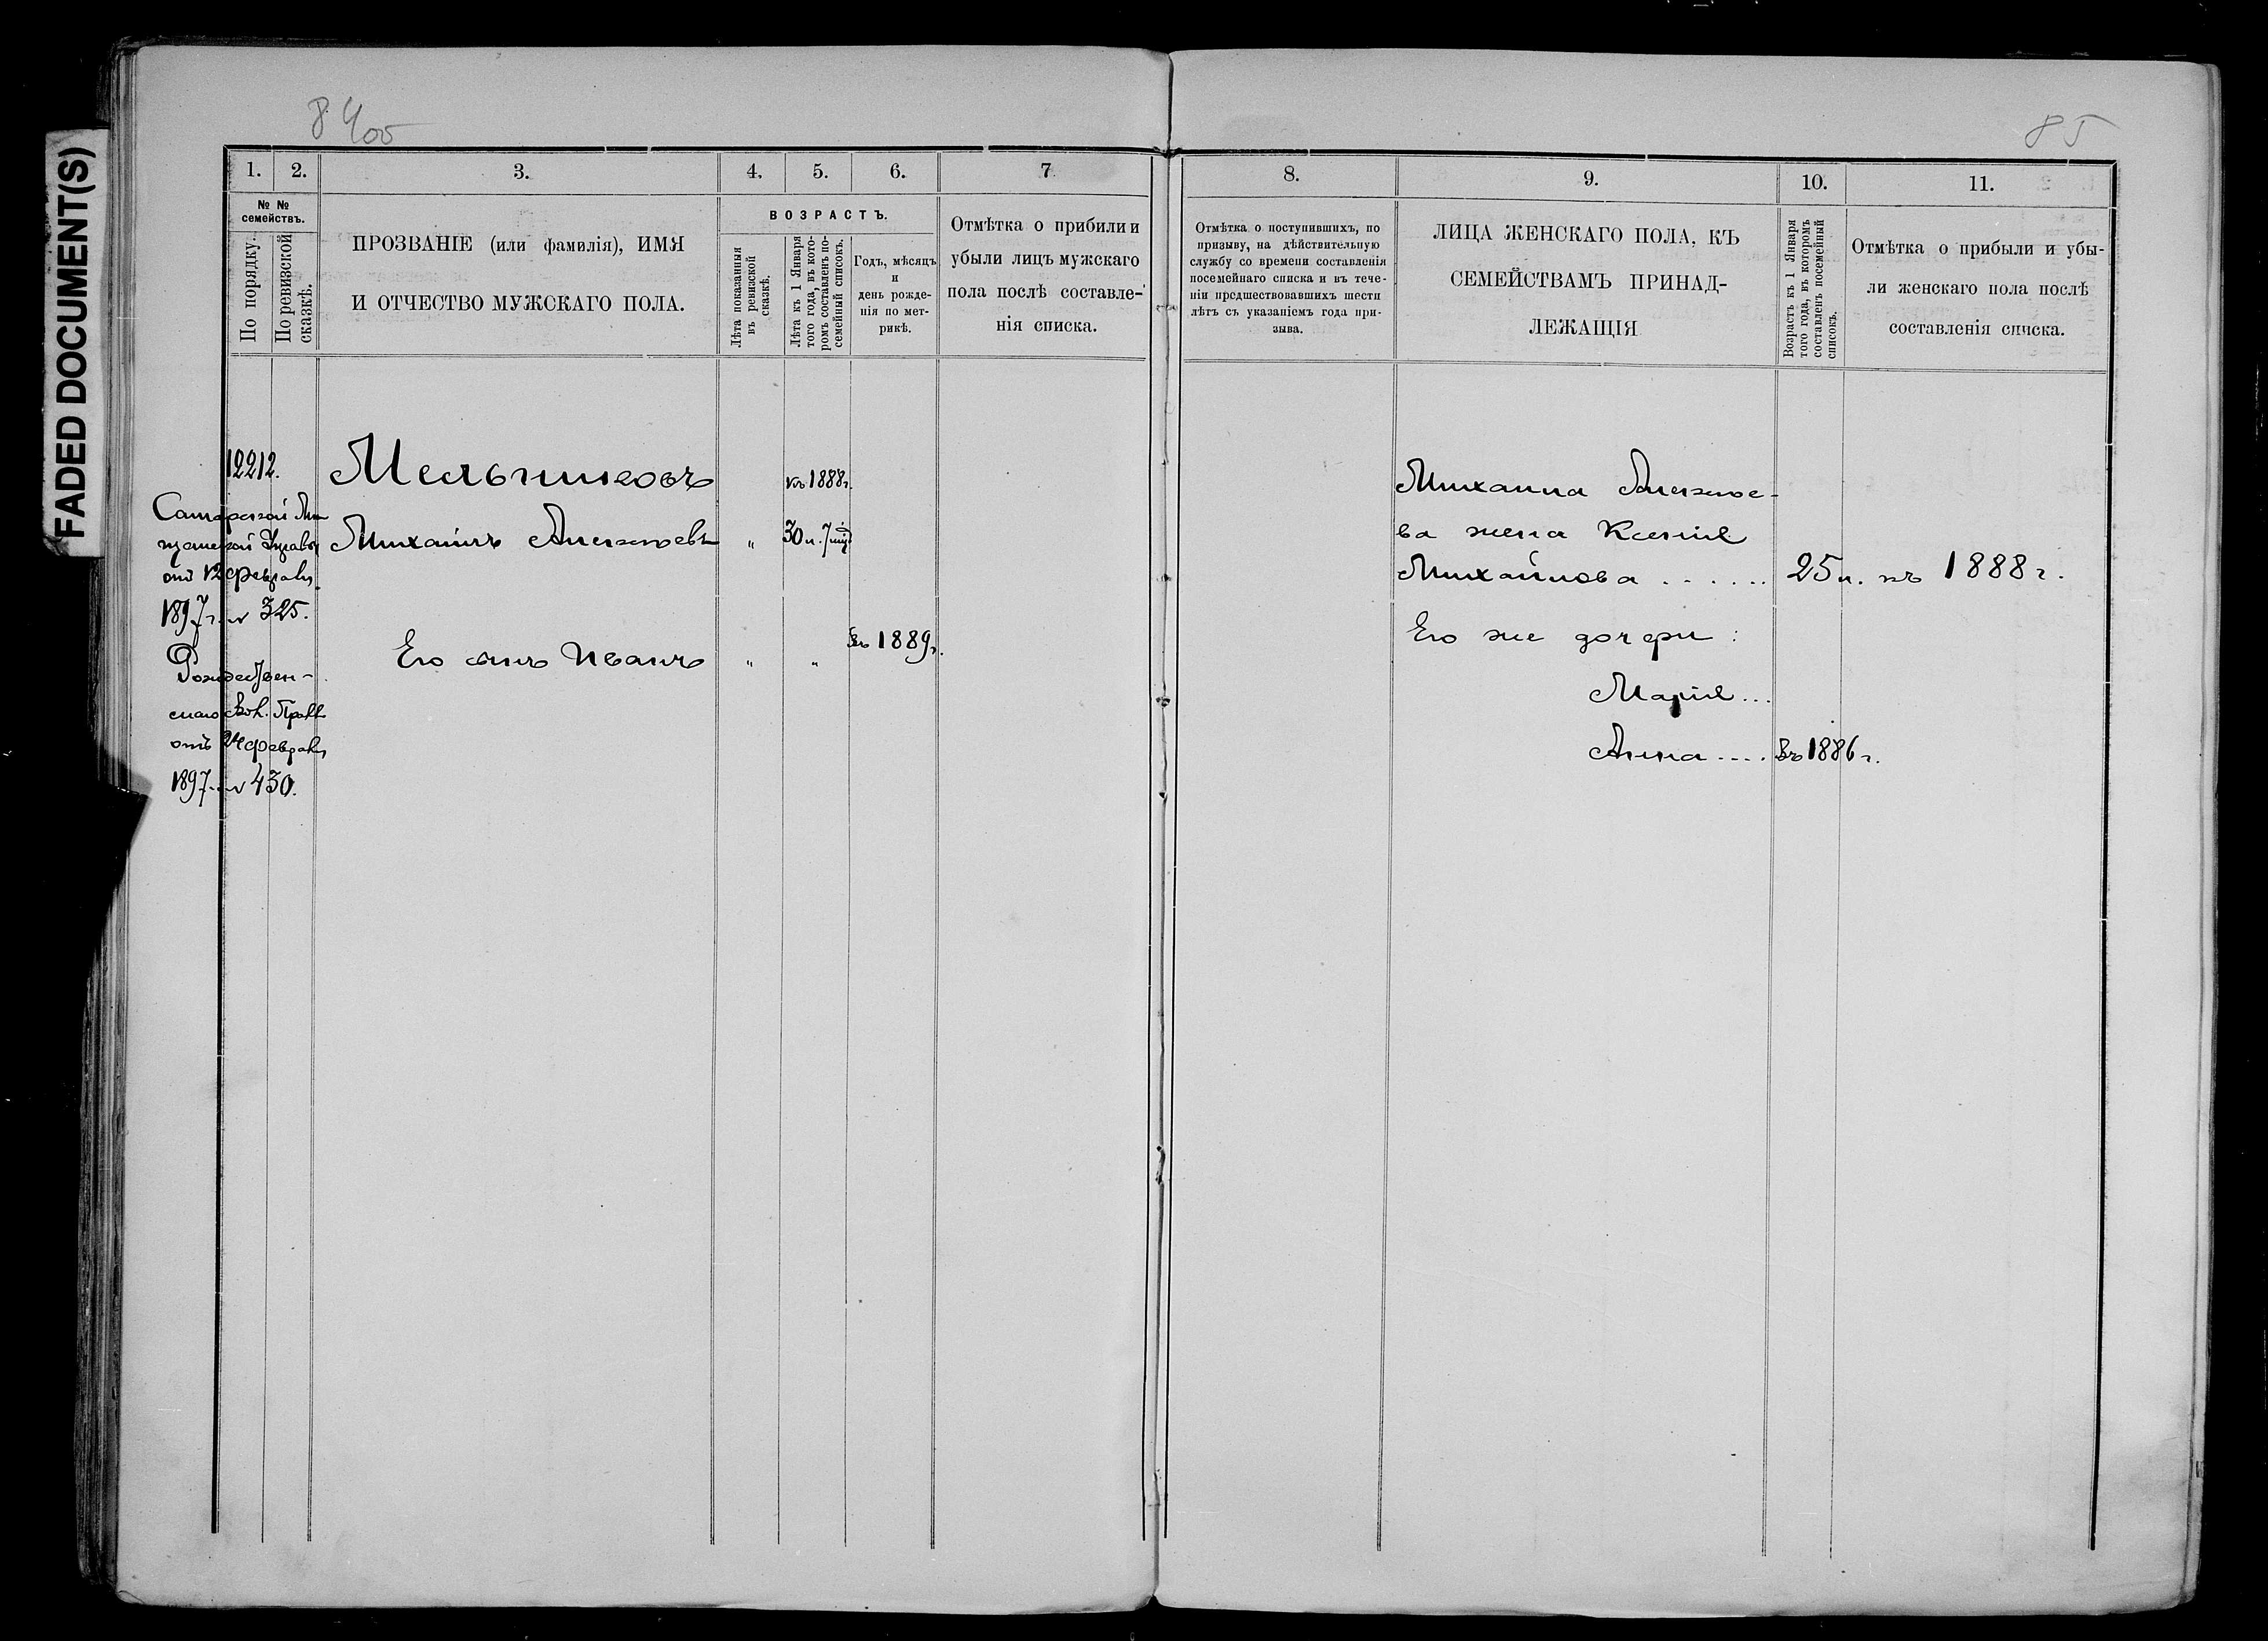 FADED DOCUMENT(S)
84об
85
1. 2. 3. 4. 5. 6. 7 8. 9. 10. 11.
№ №
семействъ.
По порядку.
По ревизской
сказкѣ.
ПРОЗВАНІЕ (или фамилія), ИМЯ
И ОТЧЕСТВО МУЖСКАГО ПОЛА.
ВОЗРАСТЪ.
Лѣта показанныя
въ ревизской
сказкѣ.
Лѣта къ 1 Января
того года, въ кото-
ромъ составленъ по-
семейный списокъ.
Годъ, мѣсяцъ
и
день рожде-
нія по мет-
рикѣ.
Отмѣтка о прибыли и
убыли лицъ мужскаго
пола послѣ составле-
нія списка.
Отмѣтка о поступившихъ, по
призыву, на дѣйствительную
службу со времени составленія
посемейнаго списка и въ тече-
ніи предшествовавшихъ шести
лѣтъ съ указаніемъ года при-
зыва.
ЛИЦА ЖЕНСКАГО ПОЛА, КЪ
СЕМЕЙСТВАМЪ ПРИНАД-
ЛЕЖАЩІЯ
Возрастъ къ 1 Января
того года, въ которомъ
составленъ посемейный
списокъ.
Отмѣтка о прибыли и убы-
ли женскаго пола послѣ
составленія списка.
12212.
Самарской Мѣ
щанской Управы
отъ 12 февраля
1897 г. № 325.
Рождествен-
скаго Вол. Правл
отъ 24 февраля
1897 г. № 430.
Мельниковъ
къ 1888 г.
Михаилъ Алексѣевъ " 30 л. 7 мѣс
Его сынъ Иванъ " " въ 1889 г.
Михаила Алексѣе-
ва жена Ксенія
Михайлова . . . . . . 25 л. къ 1888 г.
Его же дочери :
Марія ...
Анна .... въ 1886 г.